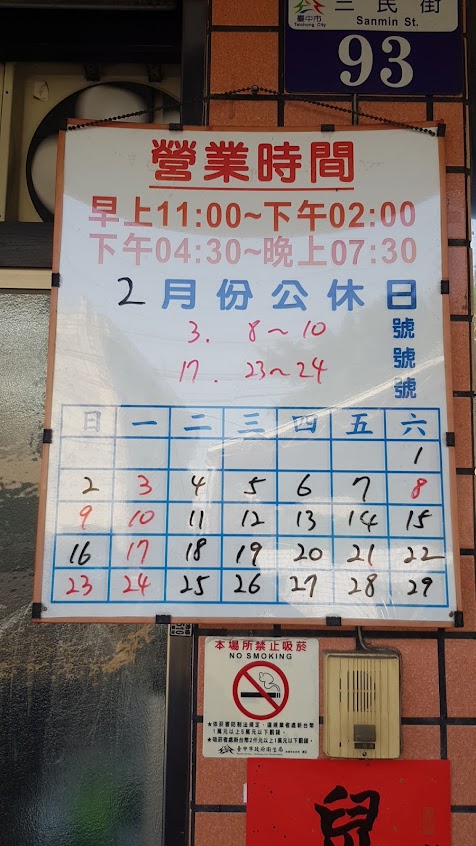 三民街
臺中市
Taichung City
Sanmin St.
93
營業時間
早上11:00~下午02:00
下午04:30~晚上07:30
2月份公休日
3. 8~10 號
17. 23~24 號
號
日 一 二 三 四 五 六
1
2 3 4 5 6 7 8
9 10 11 12 13 14 15
16 17 18 19 20 21 22
23 24 25 26 27 28 29
本場所禁止吸菸
NO SMOKING
臺中市政府衛生局